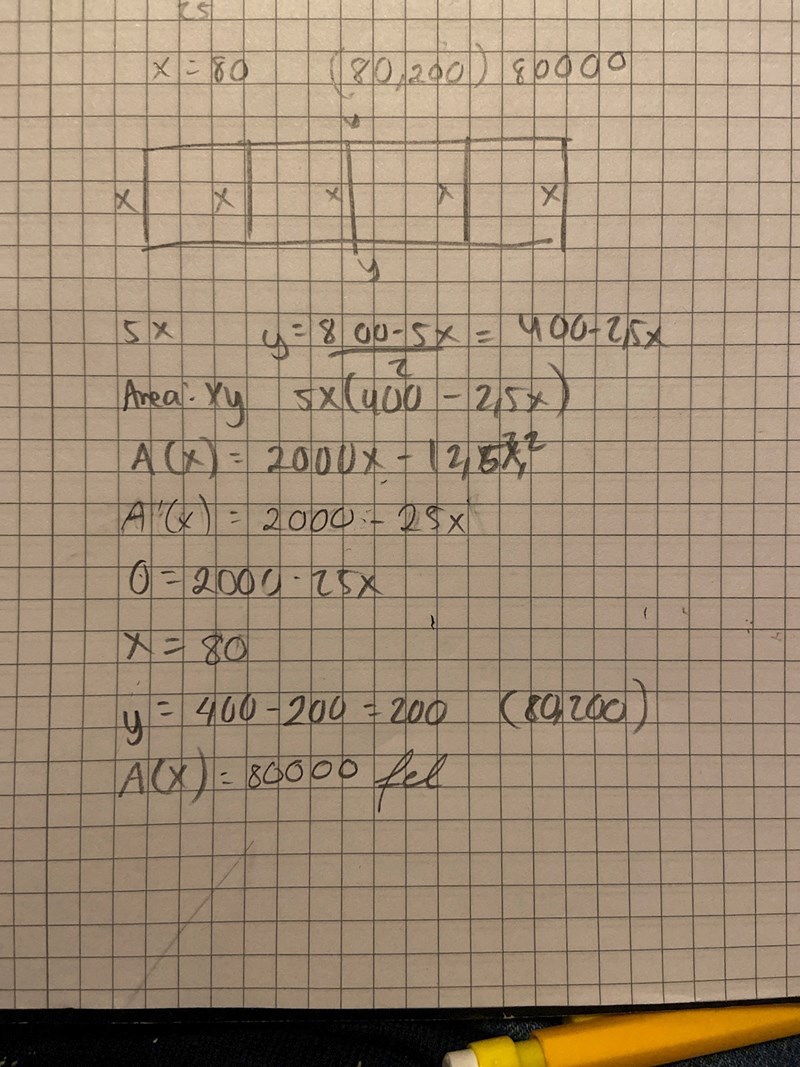 25
x = 80 (80,200) 80000
y
x x x x x
y
5x y = 800-5x / 2 = 400-2,5x
Area: xy 5x(400 - 2,5x)
A(x) = 2000x - 12,5x²
A'(x) = 2000 - 25x
0 = 2000 - 25x
x = 80
y = 400 - 200 = 200 (80,200)
A(x) = 80000 fel